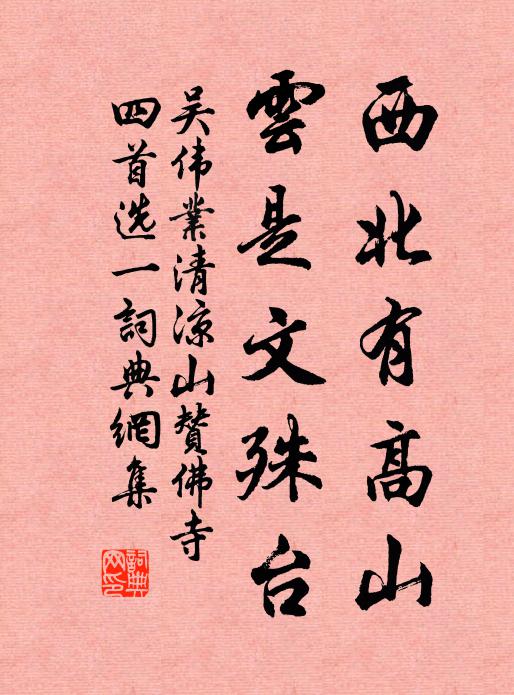 西北有高山
雲是文殊台
吴伟業清凉山賛佛寺
四首选一詞典網集
詞典网印